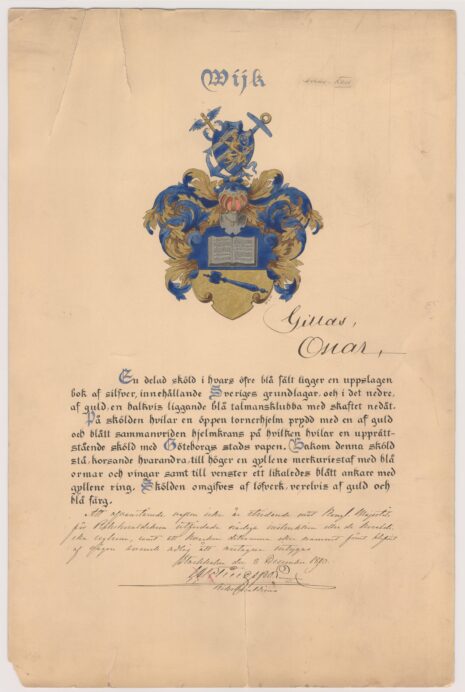 Wijk
Gillas,
Oscar.
En delad sköld i hvars öfre blå fält ligger en uppslagen
bok af silfver, innehållande Sveriges grundlagar, och i det nedre,
af guld, en halkvis liggande blå talmansklubba med skaftet nedåt.
På skölden hvilar en öppen tornerhjelm prydd med en af guld
och blått sammanvriden hjelmkrans på hvilken hvilar en upprätt-
stående sköld med Göteborgs stads vapen. Bakom denna sköld
stå, korsande hvarandra, till höger en gyllene merkuriestaf med blå
ormar och vingar samt till venster ett likaledes blått ankare med
gyllene ring. Skölden omgifves af löfverk, vexelvis af guld och
blå färg.
Att ofvanstående vapen icke är stridande mot Kongl. Majestäts
för Riksheraldikern utfärdade nådiga instruktion eller de heraldi-
ska reglerna, samt att
af någon svensk adlig ätt
Stockholm den 2 December 1890.